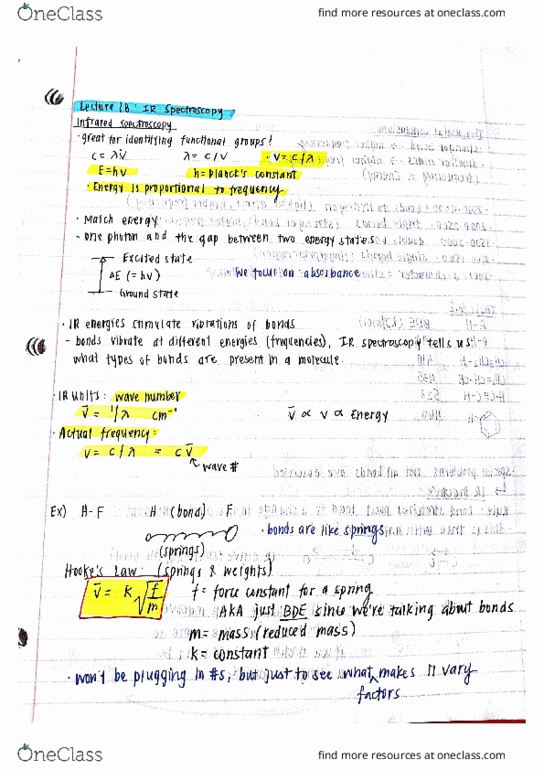 OneClass
find more resources at oneclass.com
Lecture 18: IR Spectroscopy
Infrared spectroscopy
· great for identifying functional groups!
c = λν λ = c/ν · ν = c/λ
E = hν h = Planck's constant
· Energy is proportional to frequency.
· Match energy
- one photon and the gap between two energy states
Excited state
ΔE (= hν) We focus on absorbance
Ground state
· IR energies stimulate vibrations of bonds
- bonds vibrate at different energies (frequencies), IR spectroscopy tells us
what types of bonds are present in a molecule.
· IR units: wave number
ν̄ = 1/λ cm⁻¹ ν̄ ∝ ν ∝ Energy
· Actual frequency:
ν = c/λ = cν̄
wave #
Ex) H-F H (bond) F
· bonds are like springs
(springs)
Hooke's Law: (springs & weights)
ν̄ = k√f/m f = force constant for a spring
AKA just BDE since we're talking about bonds
m = mass (reduced mass)
k = constant
· won't be plugging in #s, but just to see what makes it vary
factors
OneClass
find more resources at oneclass.com